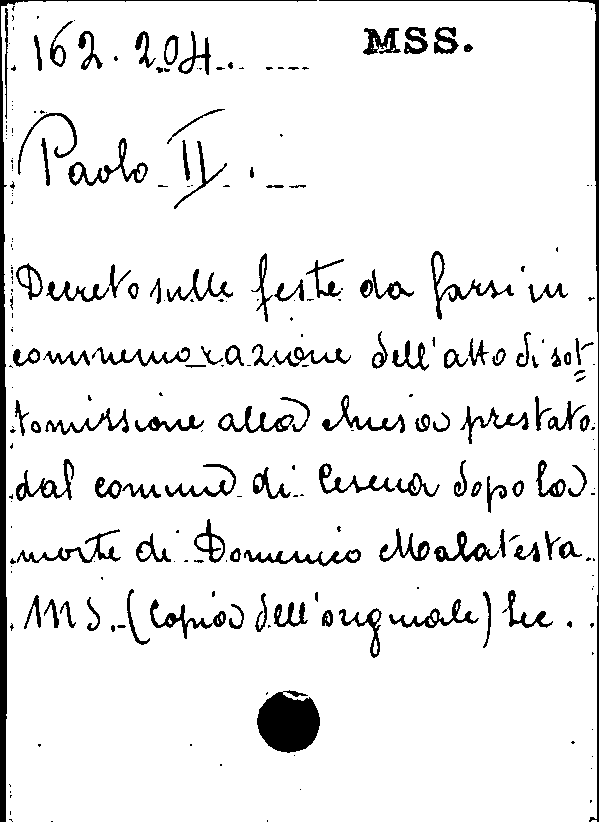 162.204. MSS.
Paolo II.
Decreto sulle feste da farsi in
commemorazione dell'atto di sot=
tomissione alla chiesa prestato
dal comune di Cesena dopo la
morte di Domenico Malatesta
MS. (Copia dell'originale) Sec.